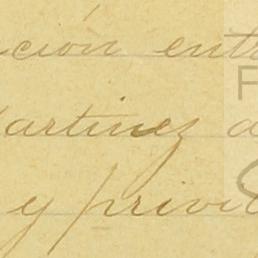 ción entr
artinez a
y privi